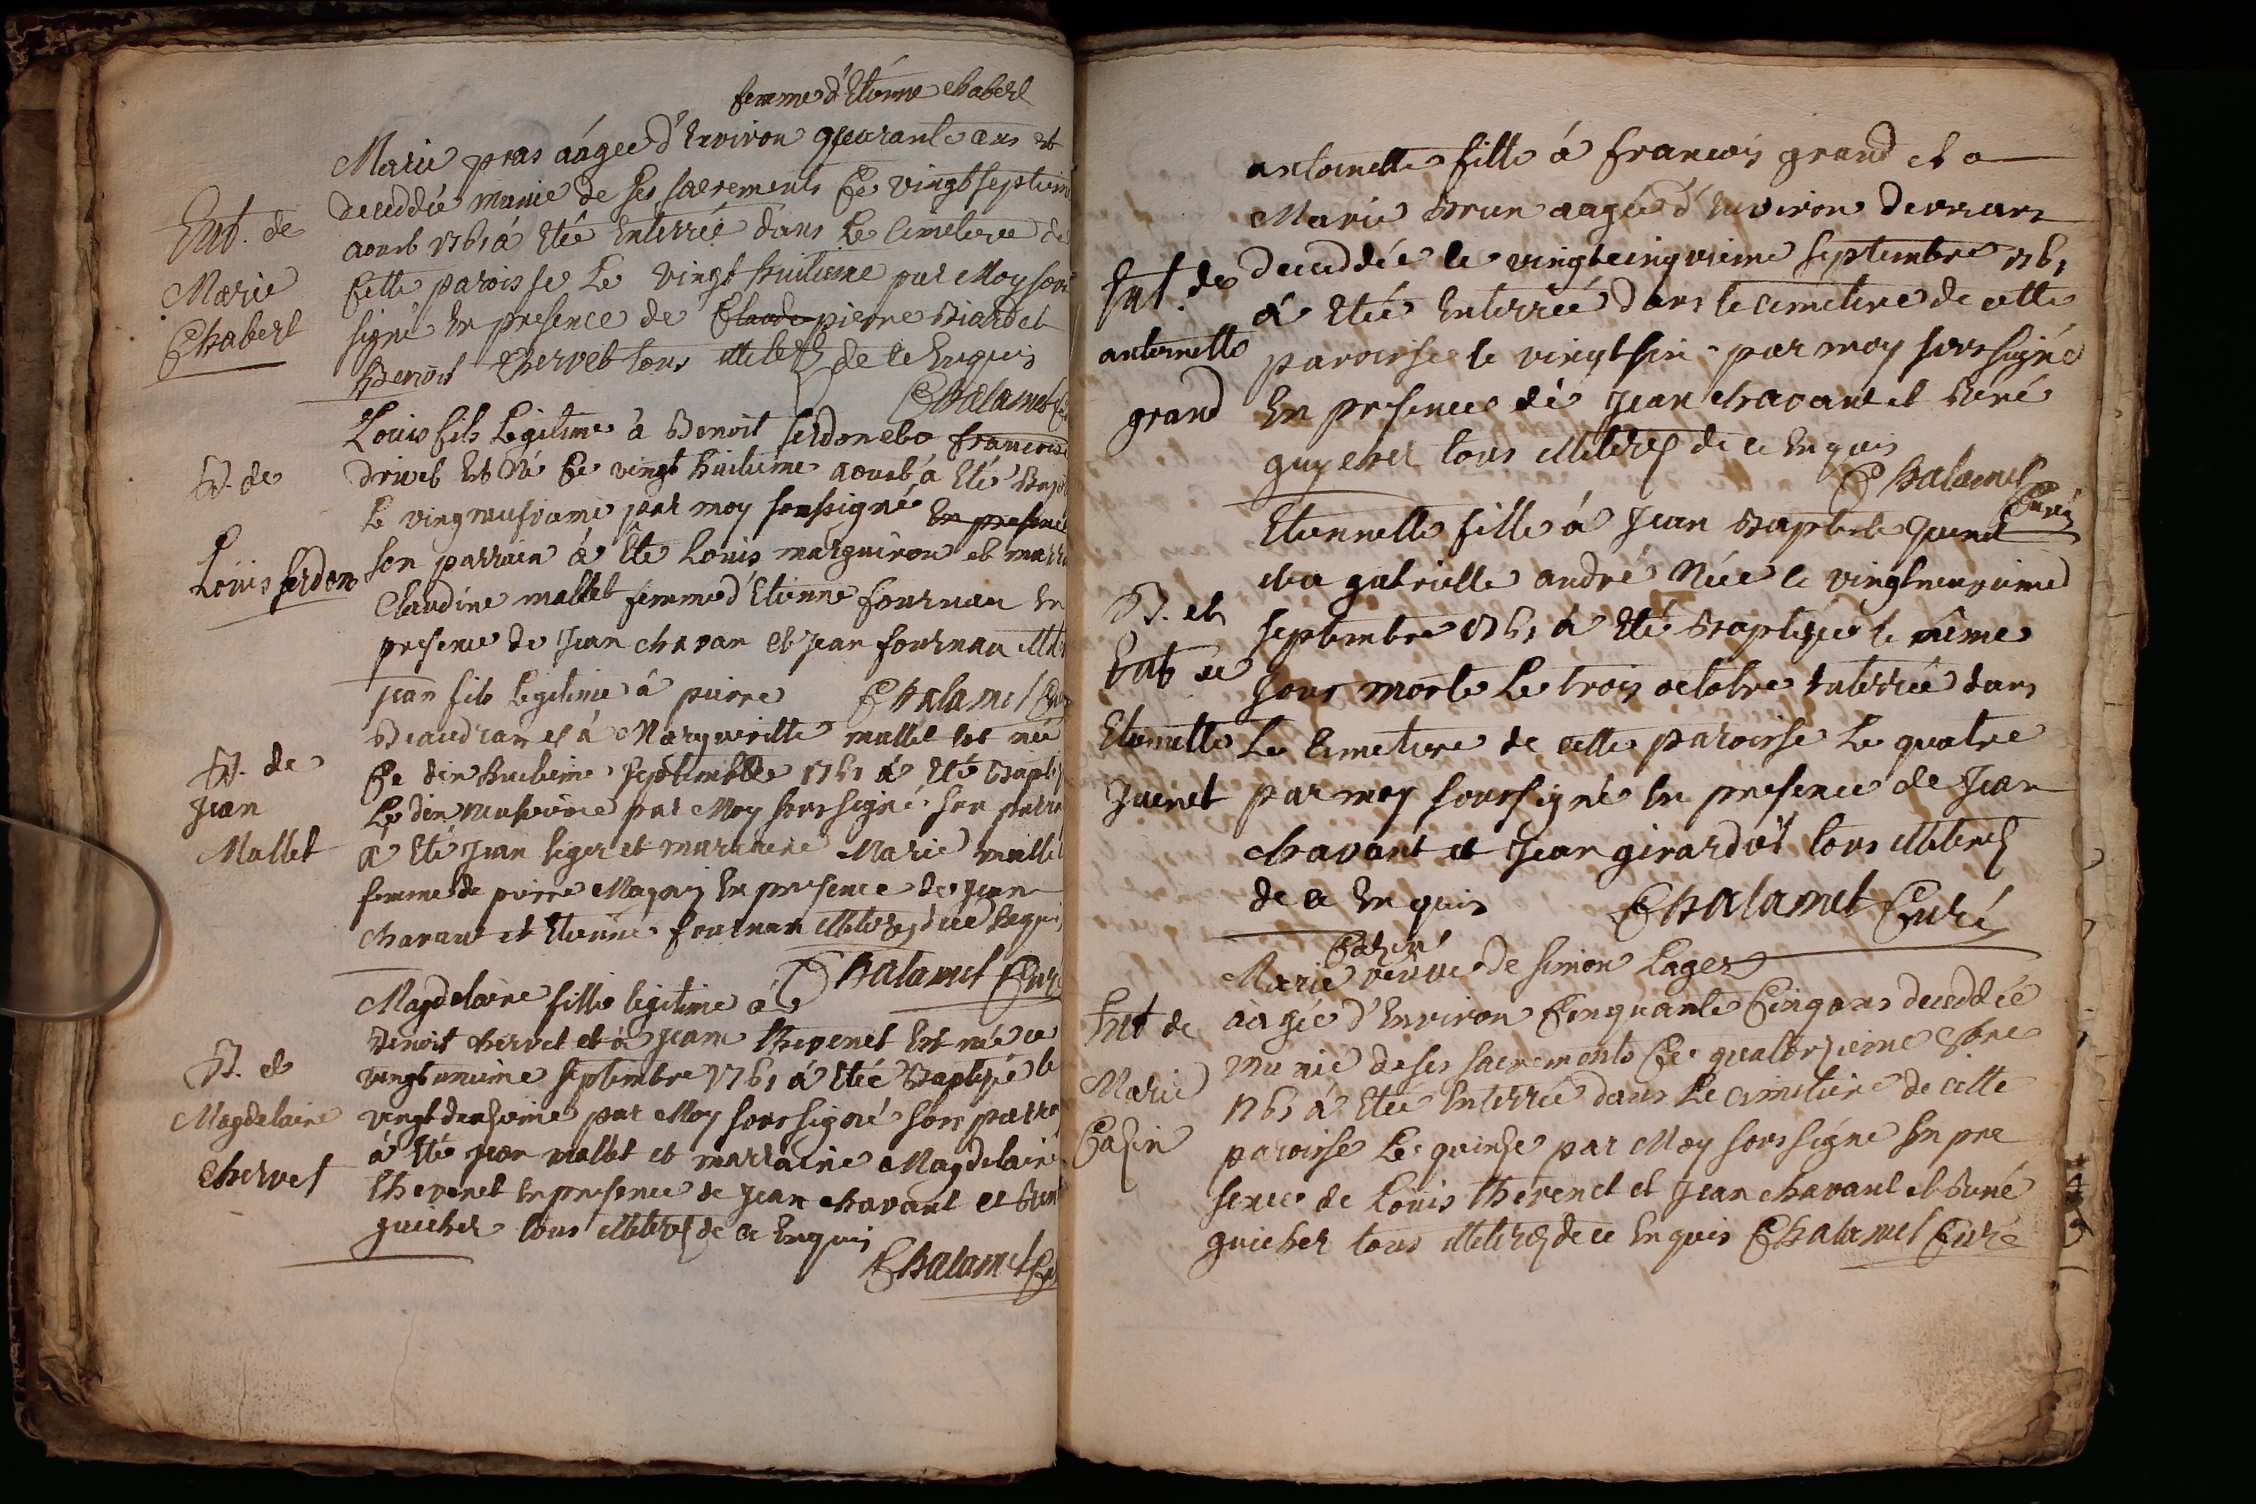 femme d'Etienne chaberl
Ent. de
Marie
Chaberl
Marie pras aágee d'Environ quarante ans est
deceddée munie de ses sacrements Ce vingt septieme
aoust 1761 á Etée Enterrée dans Le Cimetiere de
Cette paroisse Le vingt huitieme par Moy sous
signé En presence de Claude pierre Biard et
Benoit Chervet tous illiterez de ce Enquis
Chalamet
B. de
Louis ferdon
Louis fils Legitime á Benoit ferdon et a francoise
drivet Est Né Ce vingt huitieme aoust á Eté
Le vingneufvieme par moy soussigné En presence
son parrain á Ete Louis marguiron et
Claudine mallet femme d'Etienne fournau En
presence de Jean chavan Et Jean fournau
Chalamet
B. de
Jean
Mallet
Jean fils Legitime á pierre
Beaudran et á Margueritte mallet Est né
Ce dix huitieme septembre 1761 á Eté
Le dix neufvieme par Moy sous signé son
á Eté Jean leger et marraine Marie mallet
femme de pierre Magnin En presence de Jean
chavant et Etienne fournau illiterez de ce Enquis
Chalamet Curé
B. de
Magdelaine
Chervet
Magdelaine fille legitime á
Benoit chervet et á Jeane thevenet Est née ce
vingt unieme septembre 1761 á Etée Baptisée le
vingt deuxieme par Moy sous signé son
á Eté Jean mallet et marraine Magdelaine
thevenet En presence de Jean chavant et
guicher tous illiterez de ce Enquis
Chalamet
Ent. de
antoinette
grand
antoinette fille á francois grand et a
Marie Brun aagée d'Environ deux ans
deceddée le vingtcinquieme septembre 1761
á Etée Enterrée dans le cimetiere de cette
paroisse le vingt six par moy sous signé
En presence de Jean chavant et René
guycher tous illiterez de ce Enquis
Chalamet Curé
B. et
Ent de
Etiennette
Juenet
Etiennette fille á Jean Baptiste Juenet
et a gabrielle andré Née le vingtneuvieme
septembre 1761 á Eté Baptisée le même
jour morte Le trois octobre Enterrée dans
Le Cimetiere de cette paroisse Le quatre
par moy sous signé En presence de Jean
chavant et Jean girardot tous illiterez
de ce Enquis Chalamet Curé
Ent de
Marie
Cazin
Cazin
Marie veuve de simon Lager
aágée d'Environ Cinquante Cinq ans deceddée
munie de ses sacrements Ce quatorzieme 8bre
1761 á Etée Enterrée dans Le cimetiere de cette
paroisse Le quinze par Moy sous signé En pre
sence de Louis thevenet et Jean chavant et René
guicher tous illiterez de ce Enquis Chalamet Curé